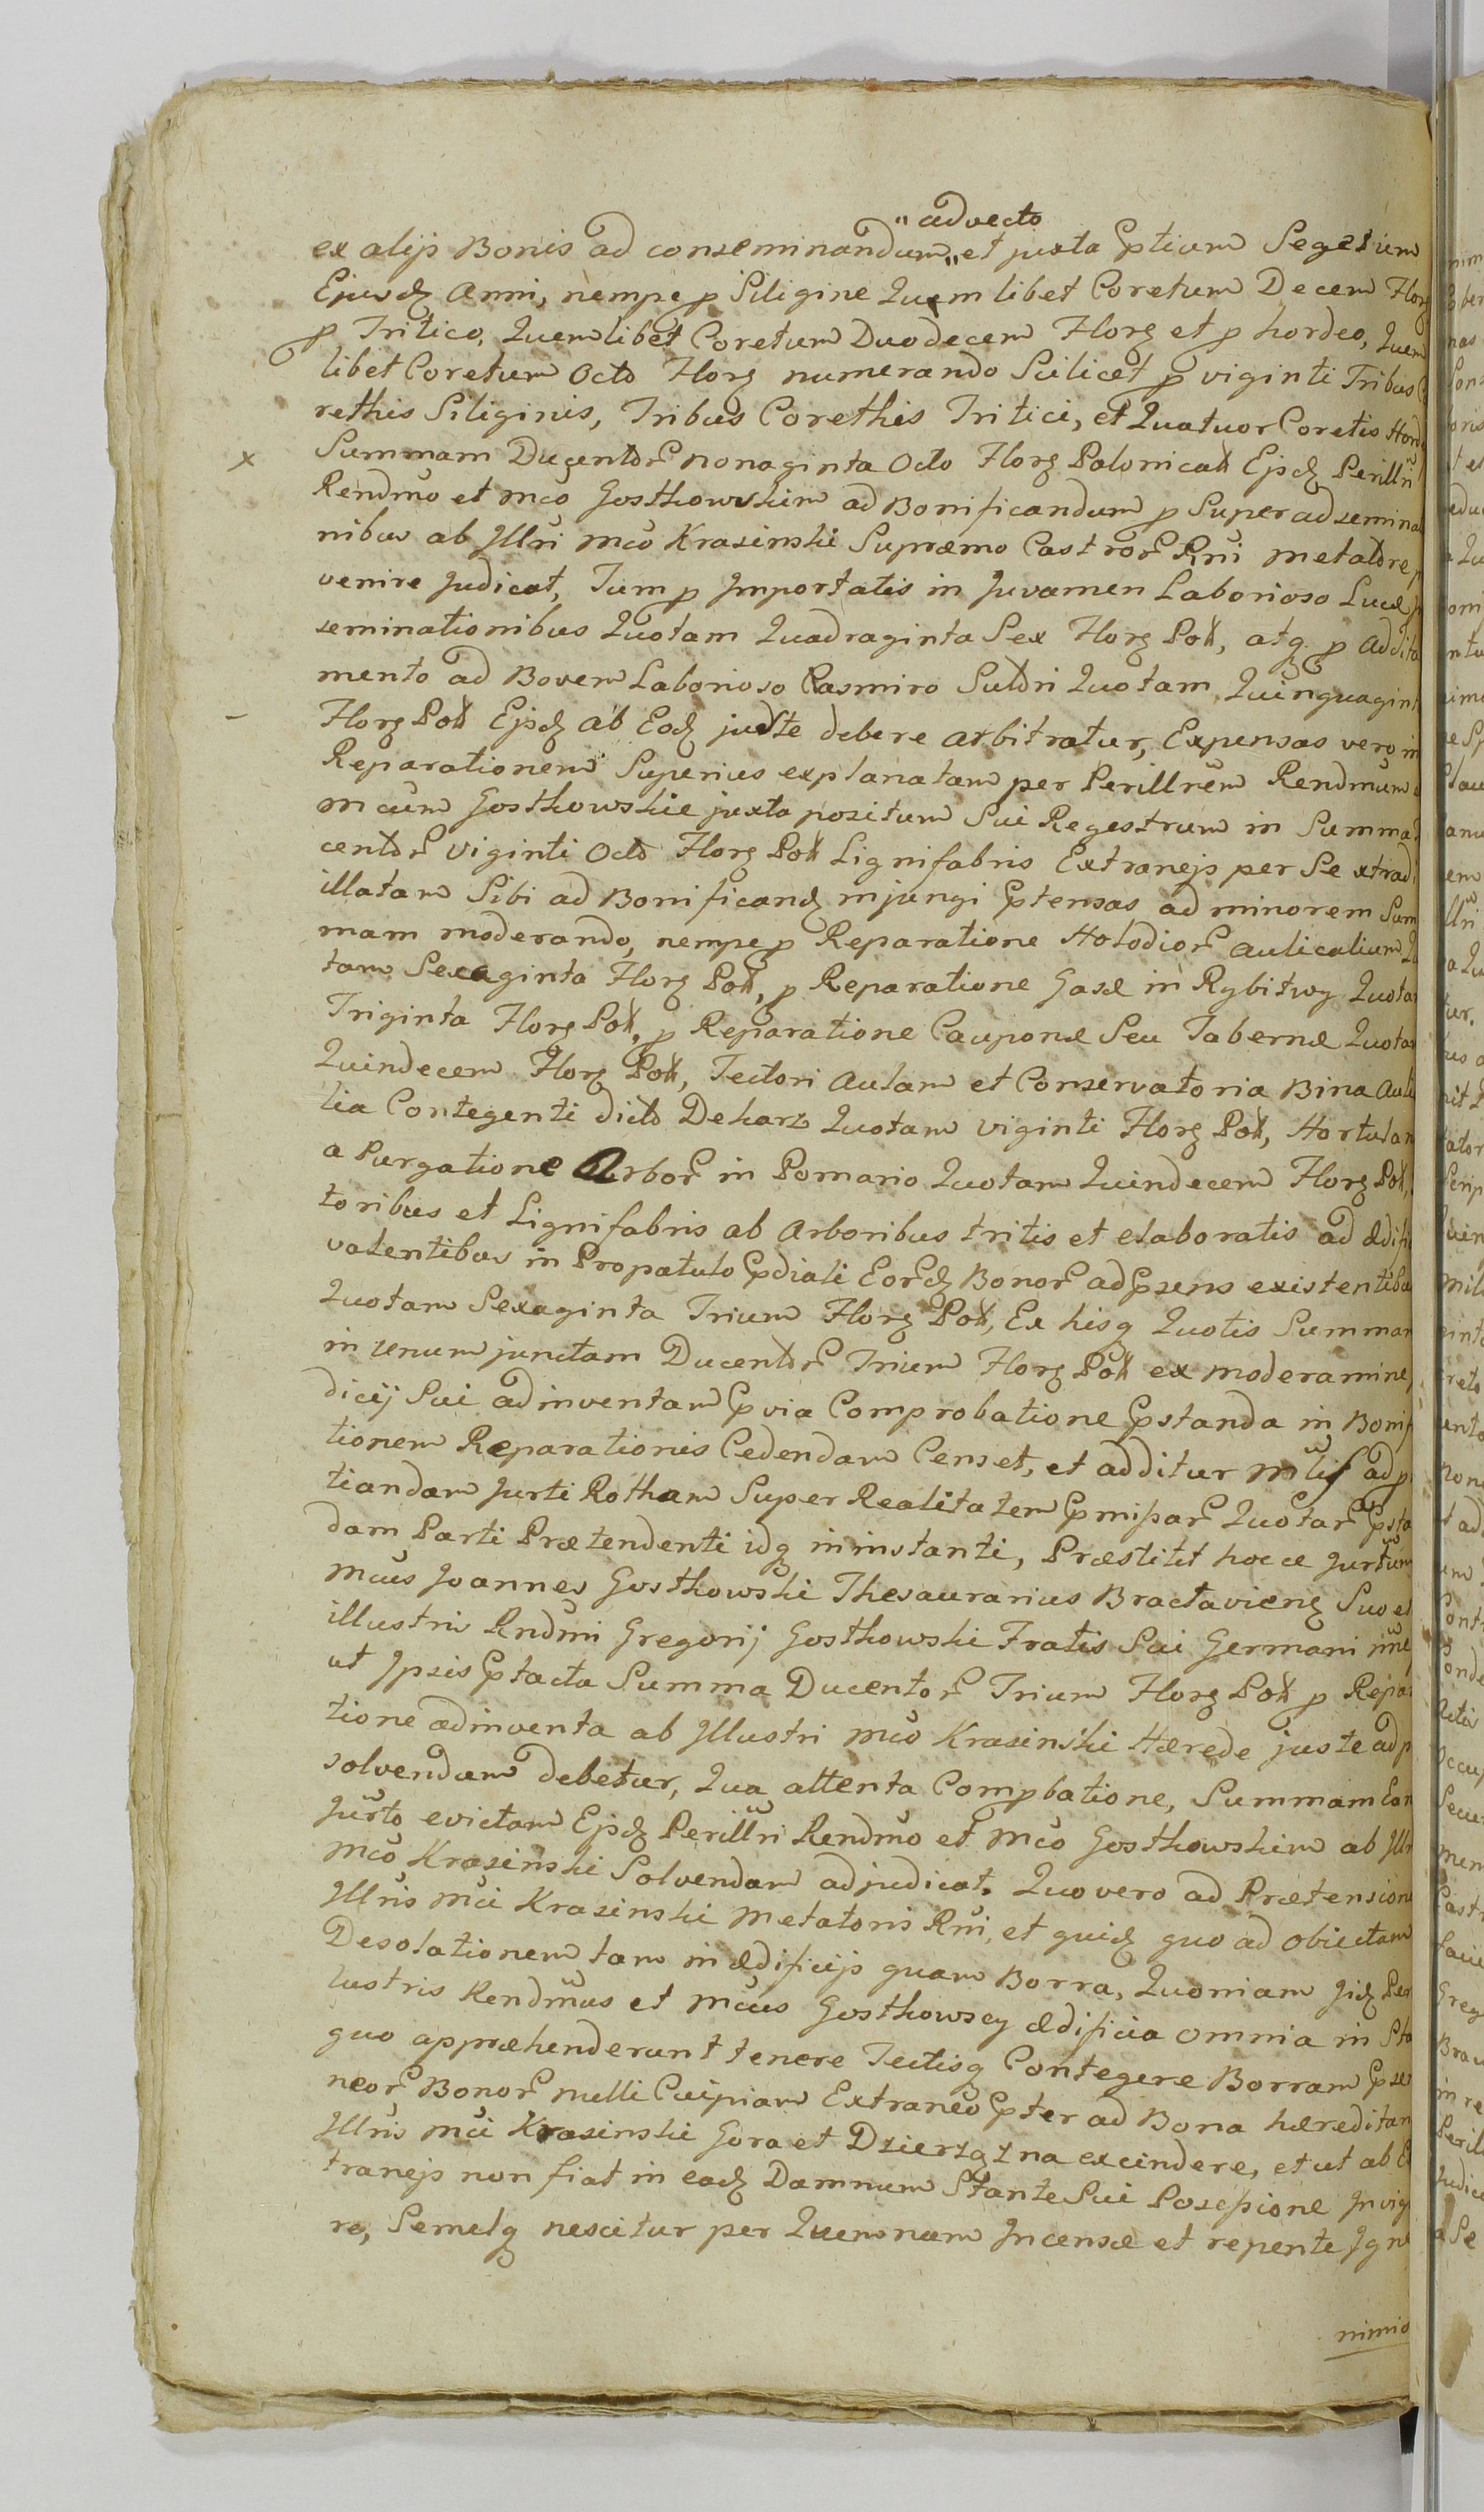 "advecto
ex alijs Bonis ad conseminandum " et juxta Ptium Segetum
Ejusd Anni, nempe p Siligine Quem libet Coretum Decem Flor
p Tritico, Quemlibet Coretum Duodecem Flor et p hordeo, Quem
libet Coretum Octo Flor numerando Scilicet p viginti Tribus
rethis Siliginis, Tribus Corethis Tritici, et Quatuor Coretis Hord
x Summam Ducentor nonaginta Octo Flor Polonical Ejsd Perillri
Rendmo et Mco Gosthowskim ad Bonificandum p Superadsemina
nibus ab Illri Mco Krasinski Supræmo Castror Rni Metatore
venire Judicat, Tum p Importatis in Juvamen Laborioso Lucæ
seminationibus Quotam Quadraginta Sex Flor Poll, atq p addita
mento ad Bovem Laborioso Casmiro Quotam Quinquagint
- Flor Poll Ejsd ab Eod juste debere arbitratur, Expensas vero in
Reparationem Superius explanatam per Perillrem Rendmum
Mcum Gosthowskie juxta positum Sui Regestrum in Summa
centor viginti Octo Flor Poll Lignifabris Extranejs per Se xtradi
illatam Sibi ad Bonificand injungi Ptensas ad minorem Sum
mam moderando, nempe p Reparatione Holodior aulicalium
tam Sexaginta Flor Poll, p Reparatione Gasæ in Rybitwy Quotam
Triginta Flor Poll, p Reparatione Cauponæ Seu Tabernæ Quotam
Quindecem Flor Poll, Tectori Aulam et Conservatoria Bina Auli
lia Contegenti dicto Deharz Quotam viginti Flor Poll, Hortulan
a Purgatione Arbor in Pomario Quotam Quindecem Flor Poll,
toribus et Lignifabris ab Arboribus tritis et elaboratis ad ædifi
valentibus in Propatulo Pdiali Eord Bonor ad Psens existentibus
Quotam Sexaginta Trium Flor Poll, Ex hisq Quotis Summam
in unum junctam Ducentor Trium Flor Poll ex moderamine
dicij Sui adinventam Pvia Comprobatione Pstanda in Bonif
tionem Reparationis Cedendam Censet, et additur ad p
tiandam Jurti Rotham Super Realitatem Pmissar Quotar Psta
dam Parti Prætendenti idq in instanti, Præstitit hocce Jurtum
Mcus Joannes Gosthowski Thesaurarius Braclavien Suo et
illustris Rndmi Gregorij Gosthowski Fratis Sui Germani
ut Ipsis Ptacta Summa Ducentor Trium Flor Poll p Repar
tione adinventa ab Illustri Mco Krasinski Hærede juste ad p
solvendum debetur, Qua attenta Compbatione, Summam Ean
Jurto evictam Ejsd Perillri Rendmo et Mco Gosthowskim ab Illr
Mco Krasinski Solvendam adjudicat. Quo vero ad Prætension
Illris Mci Krasinski Metatoris Rni, et quid quo ad obiectam
Desolationem tam in ædificijs quam Borra, Quoniam Jid Per
lustris Rendmus et Mcus Gosthowscy ædificia omnia in Sta
quo appræhenderunt tenere Tectisq Contegere Borram Pse
neor Bonor nulli Cuipiam Extraneo Pter ad Bona hæreditar
Illris Mci Krasinski Gora et Dzierząźna excindere, et ut ab Ex
tranejs non fiat in ead Damnum Stante Sui Possessione Invigi
re, Semelq nescitur per Quemnam Incensæ et repente Igne
nimio